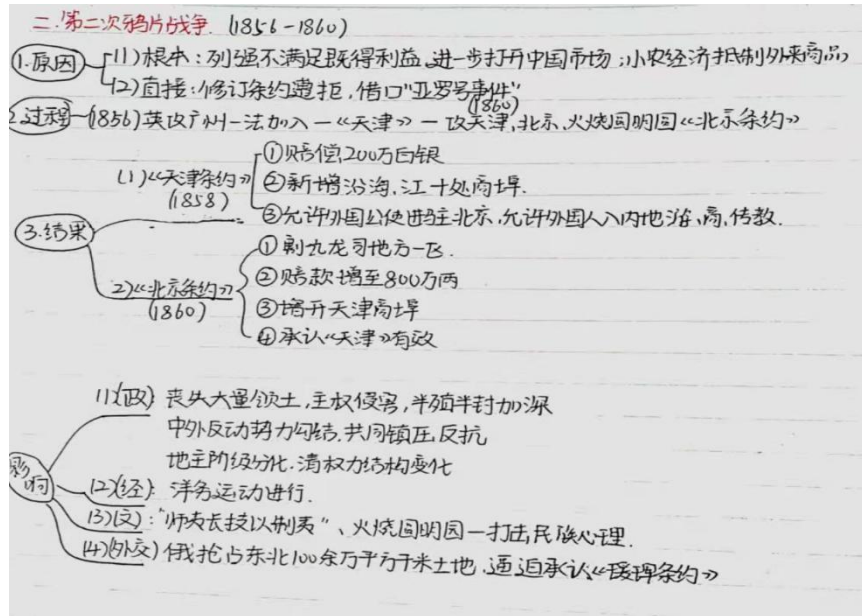 二.第二次鸦片战争.(1856-1860)
1.原因
(1)根本:列强不满足既得利益,进一步打开中国市场;小农经济抵制外来商品
(2)直接:修订条约遭拒,借口"亚罗号事件"
(1860)
2.过程-(1856)英攻广州-法加入-《天津》-攻天津,北京、火烧圆明园《北京条约》
3.结果
(1)《天津条约》
(1858)
①赔偿200万白银
②新增沿海、江十处商埠.
③允许外国公使进驻北京,允许外国人入内地游、商、传教.
2)《北京条约》
(1860)
①割九龙司地方一区.
②赔款增至800万两
③增开天津商埠
④承认《天津》有效
影响
(1)(政)丧失大量领土,主权侵害,半殖半封加深
中外反动势力勾结,共同镇压反抗
地主阶级分化.清权力结构变化
(2)(经):洋务运动进行.
(3)(文):"师夷长技以制夷"、火烧圆明园-打击民族心理.
(4)(外交)俄抢占东北100余万平方千米土地,逼迫承认《瑷珲条约》